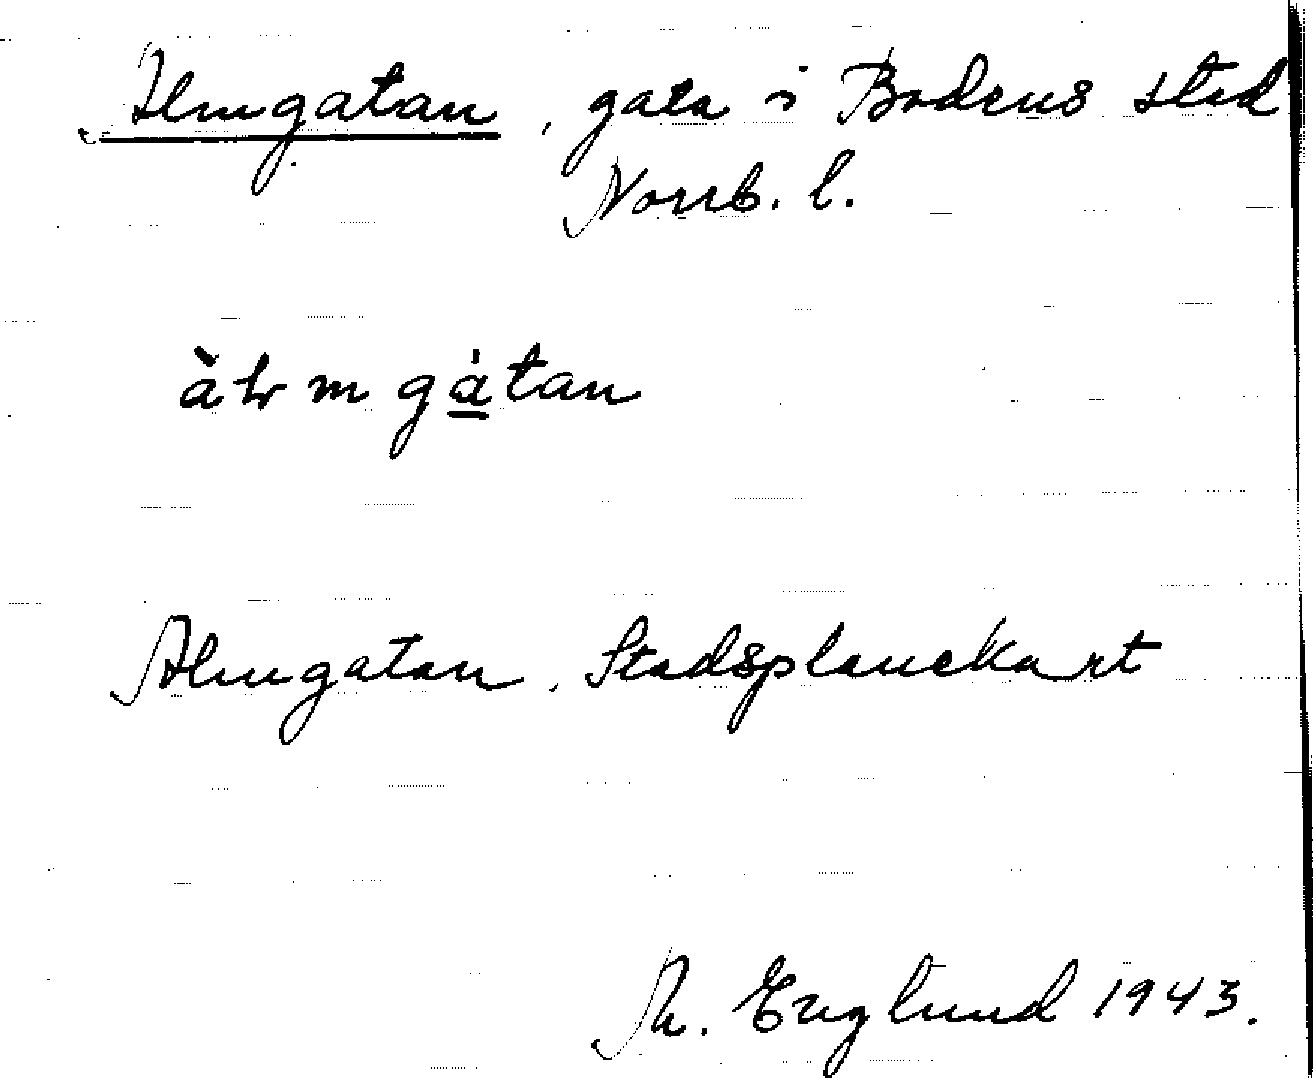 Almgatan, gata i Bodens stad
Norrb. l.
àlmgátan
Almgatan, Stadsplanekart
A. Englund 1943.